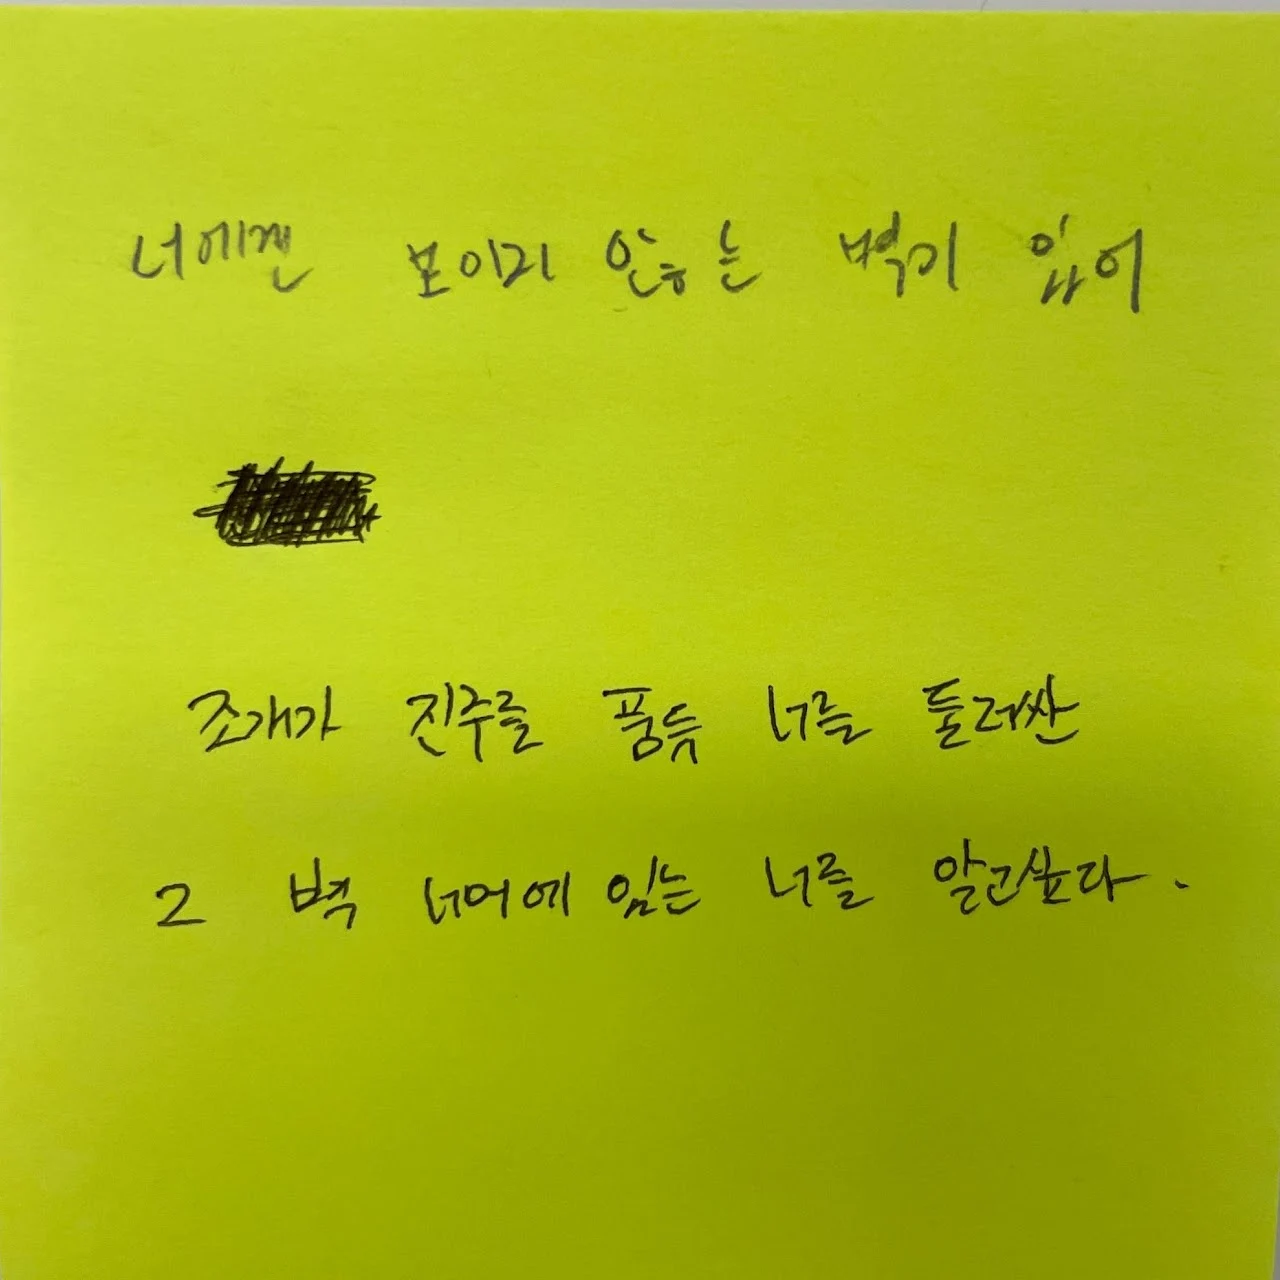 너에겐 보이지 않는 벽이 있어
조개가 진주를 품듯 너를 둘러싼
그 벽 너머에 있는 너를 알고싶다.